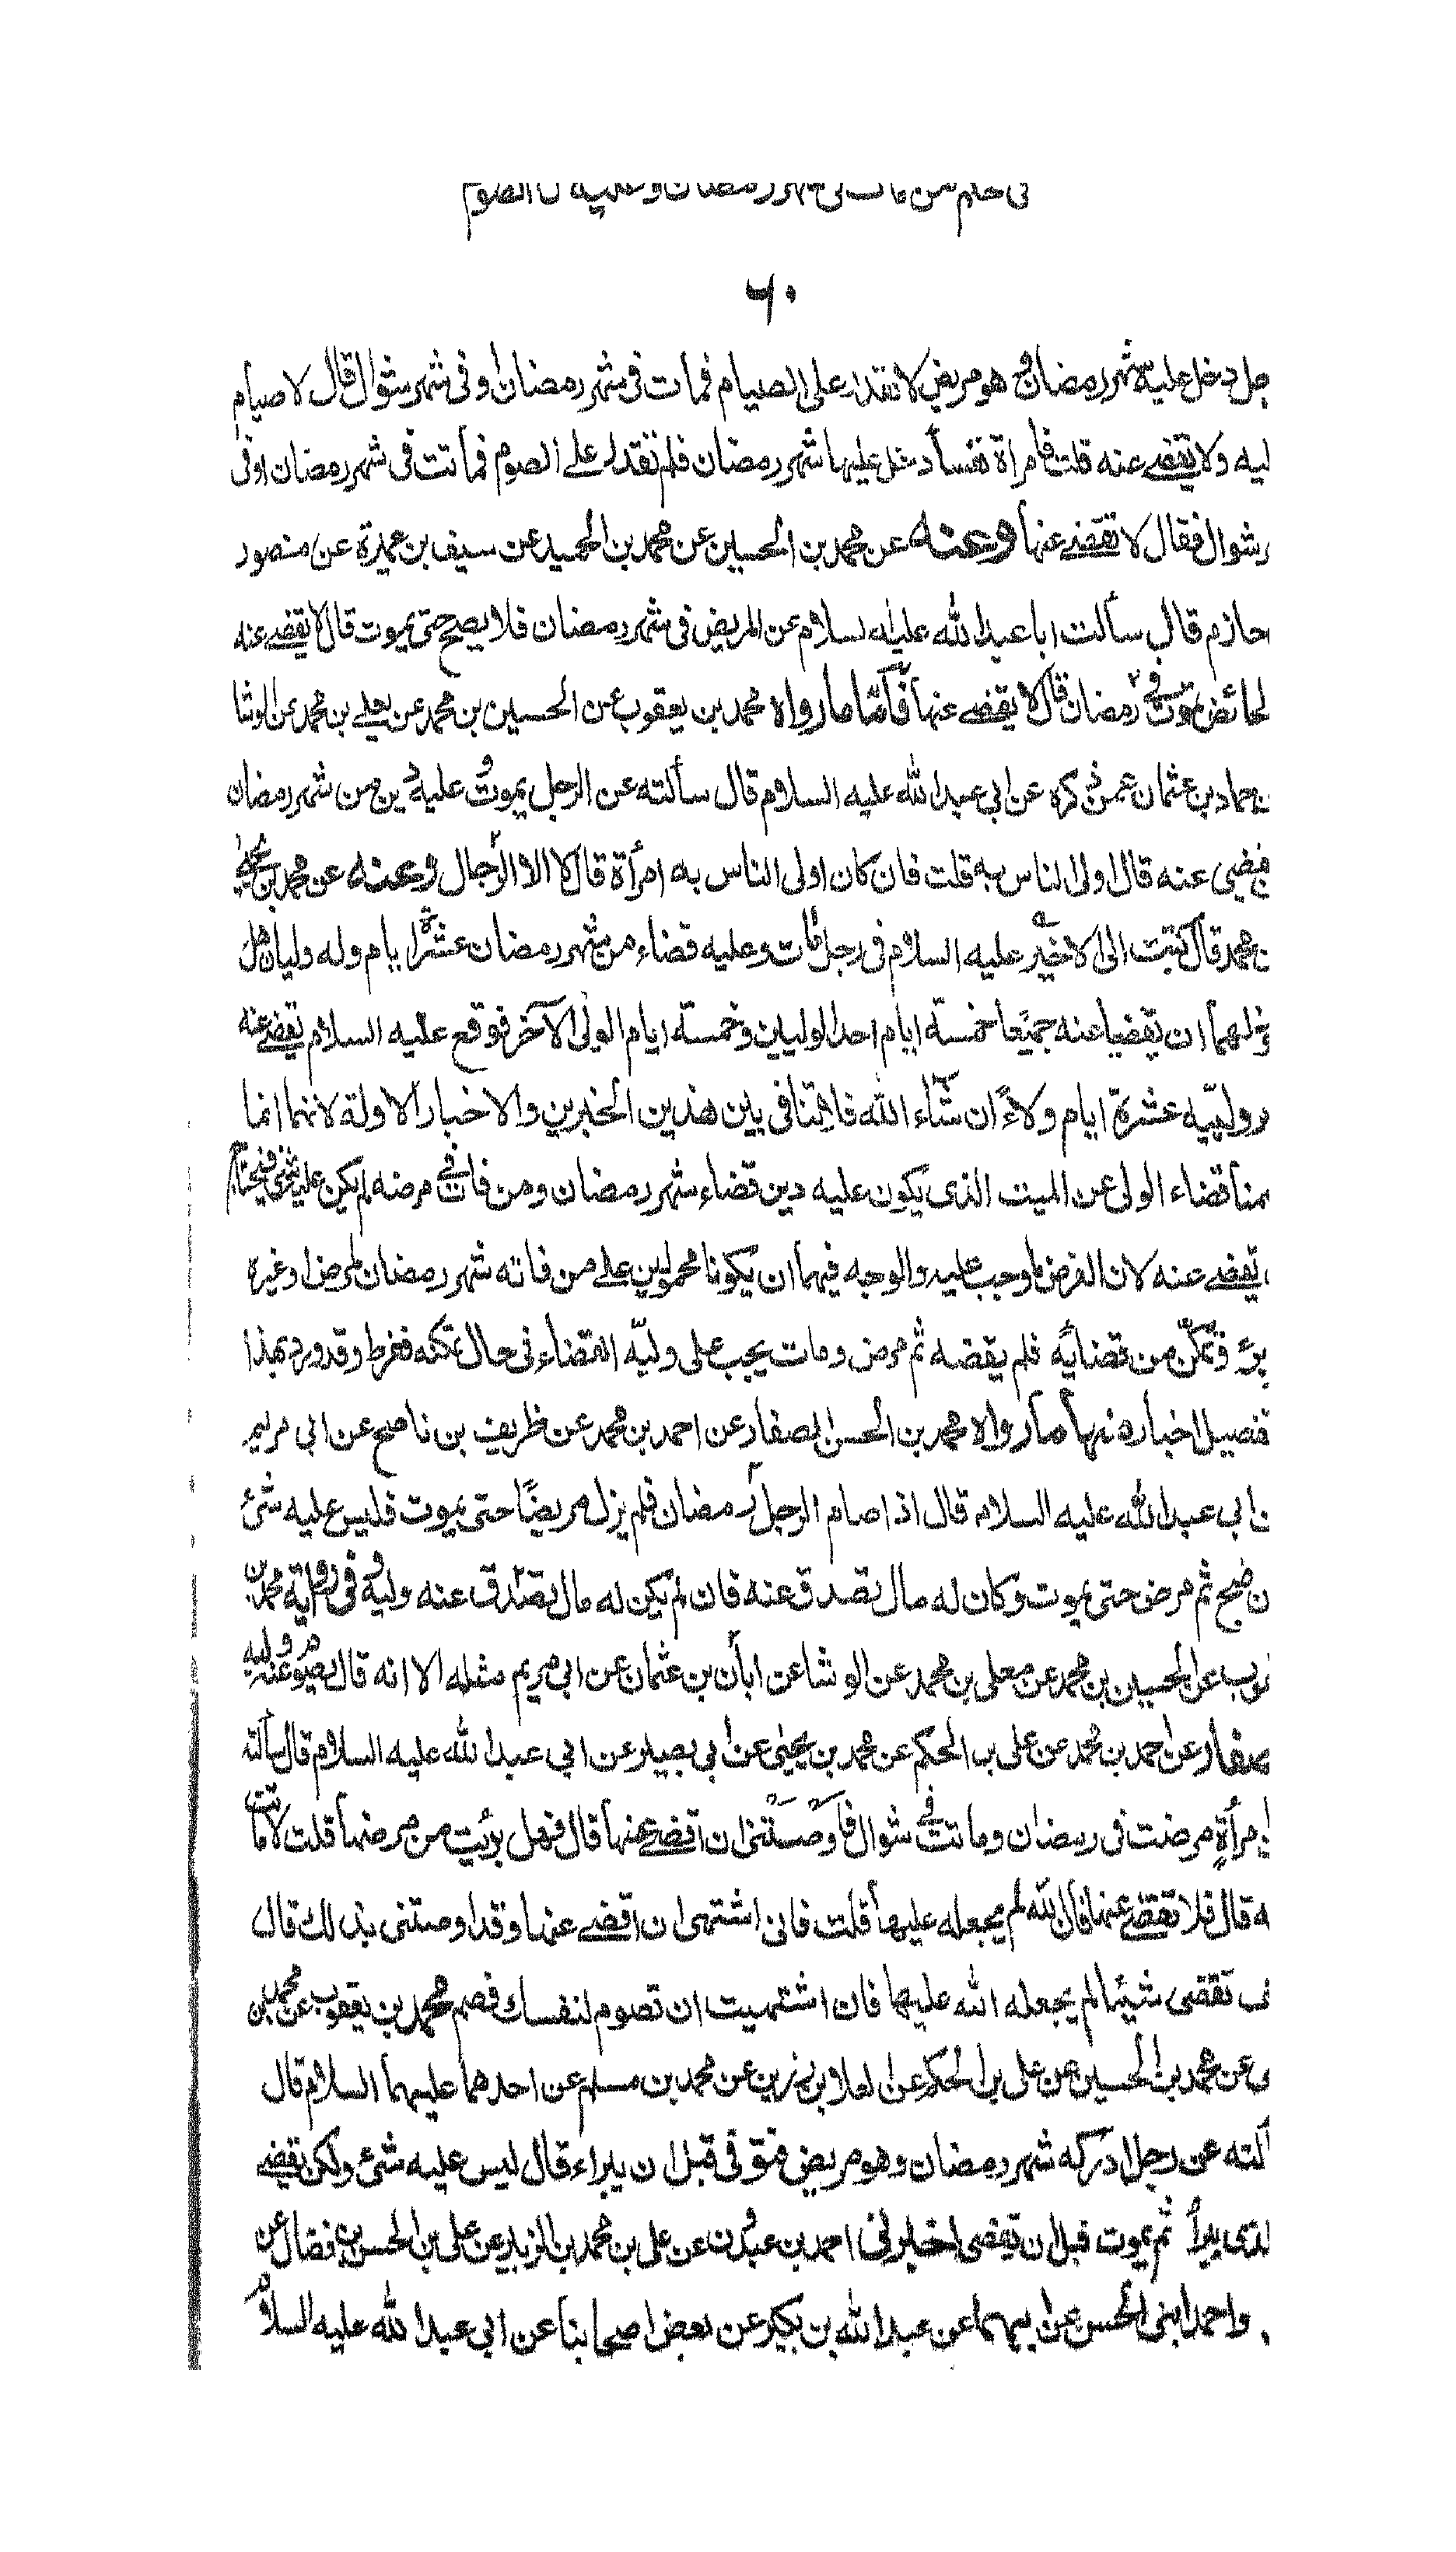 في حكم من مات في شهر رمضان وعليه الصوم
٦٠
جل دخل عليه شهر رمضان وهو مريض لا يقدر على الصيام فمات في شهر رمضان او في شهر شوال قال لا صيام
ليه ولا يقضى عنه قلت فامراة نفساء دخل عليها شهر رمضان فلم تقدر على الصوم فماتت في شهر رمضان او في
ر شوال فقال لا يقضى عنها وعنه عن محمد بن الحسين عن محمد بن الحميد عن سيف بن عميرة عن منصور
حازم قال سألت ابا عبد الله عليه السلام عن المريض في شهر رمضان فلا يصح حتى يموت قال لا يقضى عنه
لحائض تموت في رمضان قال لا يقضى عنها فأما ما رواه محمد بن يعقوب عن الحسين بن محمد عن معلى بن محمد عن الوشا
ن حماد بن عثمان عمن ذكره عن ابي عبد الله عليه السلام قال سألته عن الرجل يموت وعليه دين من شهر رمضان
يقضى عنه قال اولى الناس به قلت فان كان اولى الناس به امرأة قال لا الا الرجال وعنه عن محمد بن يحيى
ن محمد قال كتبت الى الاخير عليه السلام في رجل مات وعليه قضاء من شهر رمضان عشرة ايام وله وليان هل
وز لهما ان يقضيا عنه جميعا خمسة ايام احد الوليين وخمسة ايام الولى الآخر فوقع عليه السلام يقضى عنه
بر ولييه عشرة ايام ولاءً ان شاء الله فلا تنافى بين هذين الخبرين والاخبار الاولة لانهما انما
منا قضاء الولى عن الميت الذى يكون عليه دين قضاء شهر رمضان ومن فات في مرضه لم يكن عليه شئ فيحتاج
يقضى عنه لان الفرض ما وجب عليه والوجه فيهما ان يكونا محمولين على من فاته شهر رمضان لمرض او غيره
برء وتمكن من قضائه فلم يقضه ثم مرض ومات يجب على وليه القضاء في حال تمكنه ففرط وقد ورد بهذا
تفصيل اخباره منها ما رواه محمد بن الحسن الصفار عن احمد بن محمد عن ظريف بن ناصح عن ابي مريم
ن ابي عبد الله عليه السلام قال اذا صام الرجل رمضان فلم يزل مريضًا حتى يموت فليس عليه شئ
ن صح ثم مرض حتى يموت وكان له مال تصدق عنه فان لم يكن له مال تصدق عنه وليه وفي رواية محمد بن
قوب عن الحسين بن محمد عن معلى بن محمد عن الوشا عن ابان بن عثمان عن ابي مريم مثله الا انه قال صام عنه وليه
صفار عن احمد بن محمد عن على بن الحكم عن محمد بن يحيى عن ابي بصير عن ابي عبد الله عليه السلام قال سألته
ن امرأة مرضت في رمضان وماتت في شوال فأوصتنى ان اقضى عنها قال فهل برئت من مرضها قلت لا ماتت
ه قال فلا تقضى عنها فان الله لم يجعله عليها قلت فانى اشتهى ان اقضى عنها وقد اوصتنى بذلك قال
ف تقضى شيئا لم يجعله الله عليها فان اشتهيت ان تصوم لنفسك فصم محمد بن يعقوب عن محمد بن
ى عن محمد بن الحسين عن على بن الحكم عن العلا بن رزين عن محمد بن مسلم عن احدهما عليهما السلام قال
ألته عن رجل ادركه شهر رمضان وهو مريض فتوفى قبل ان يبراء قال ليس عليه شئ ولكن يقضى
لذى يبرأ ثم يموت قبل ان يقضى اخبرنى احمد بن عبدون عن على بن محمد بن الزبير عن على بن الحسن بن فضال عن
واحمد ابنى الحسن عن ابيهما عن عبد الله بن بكير عن بعض اصحابنا عن ابي عبد الله عليه السلام